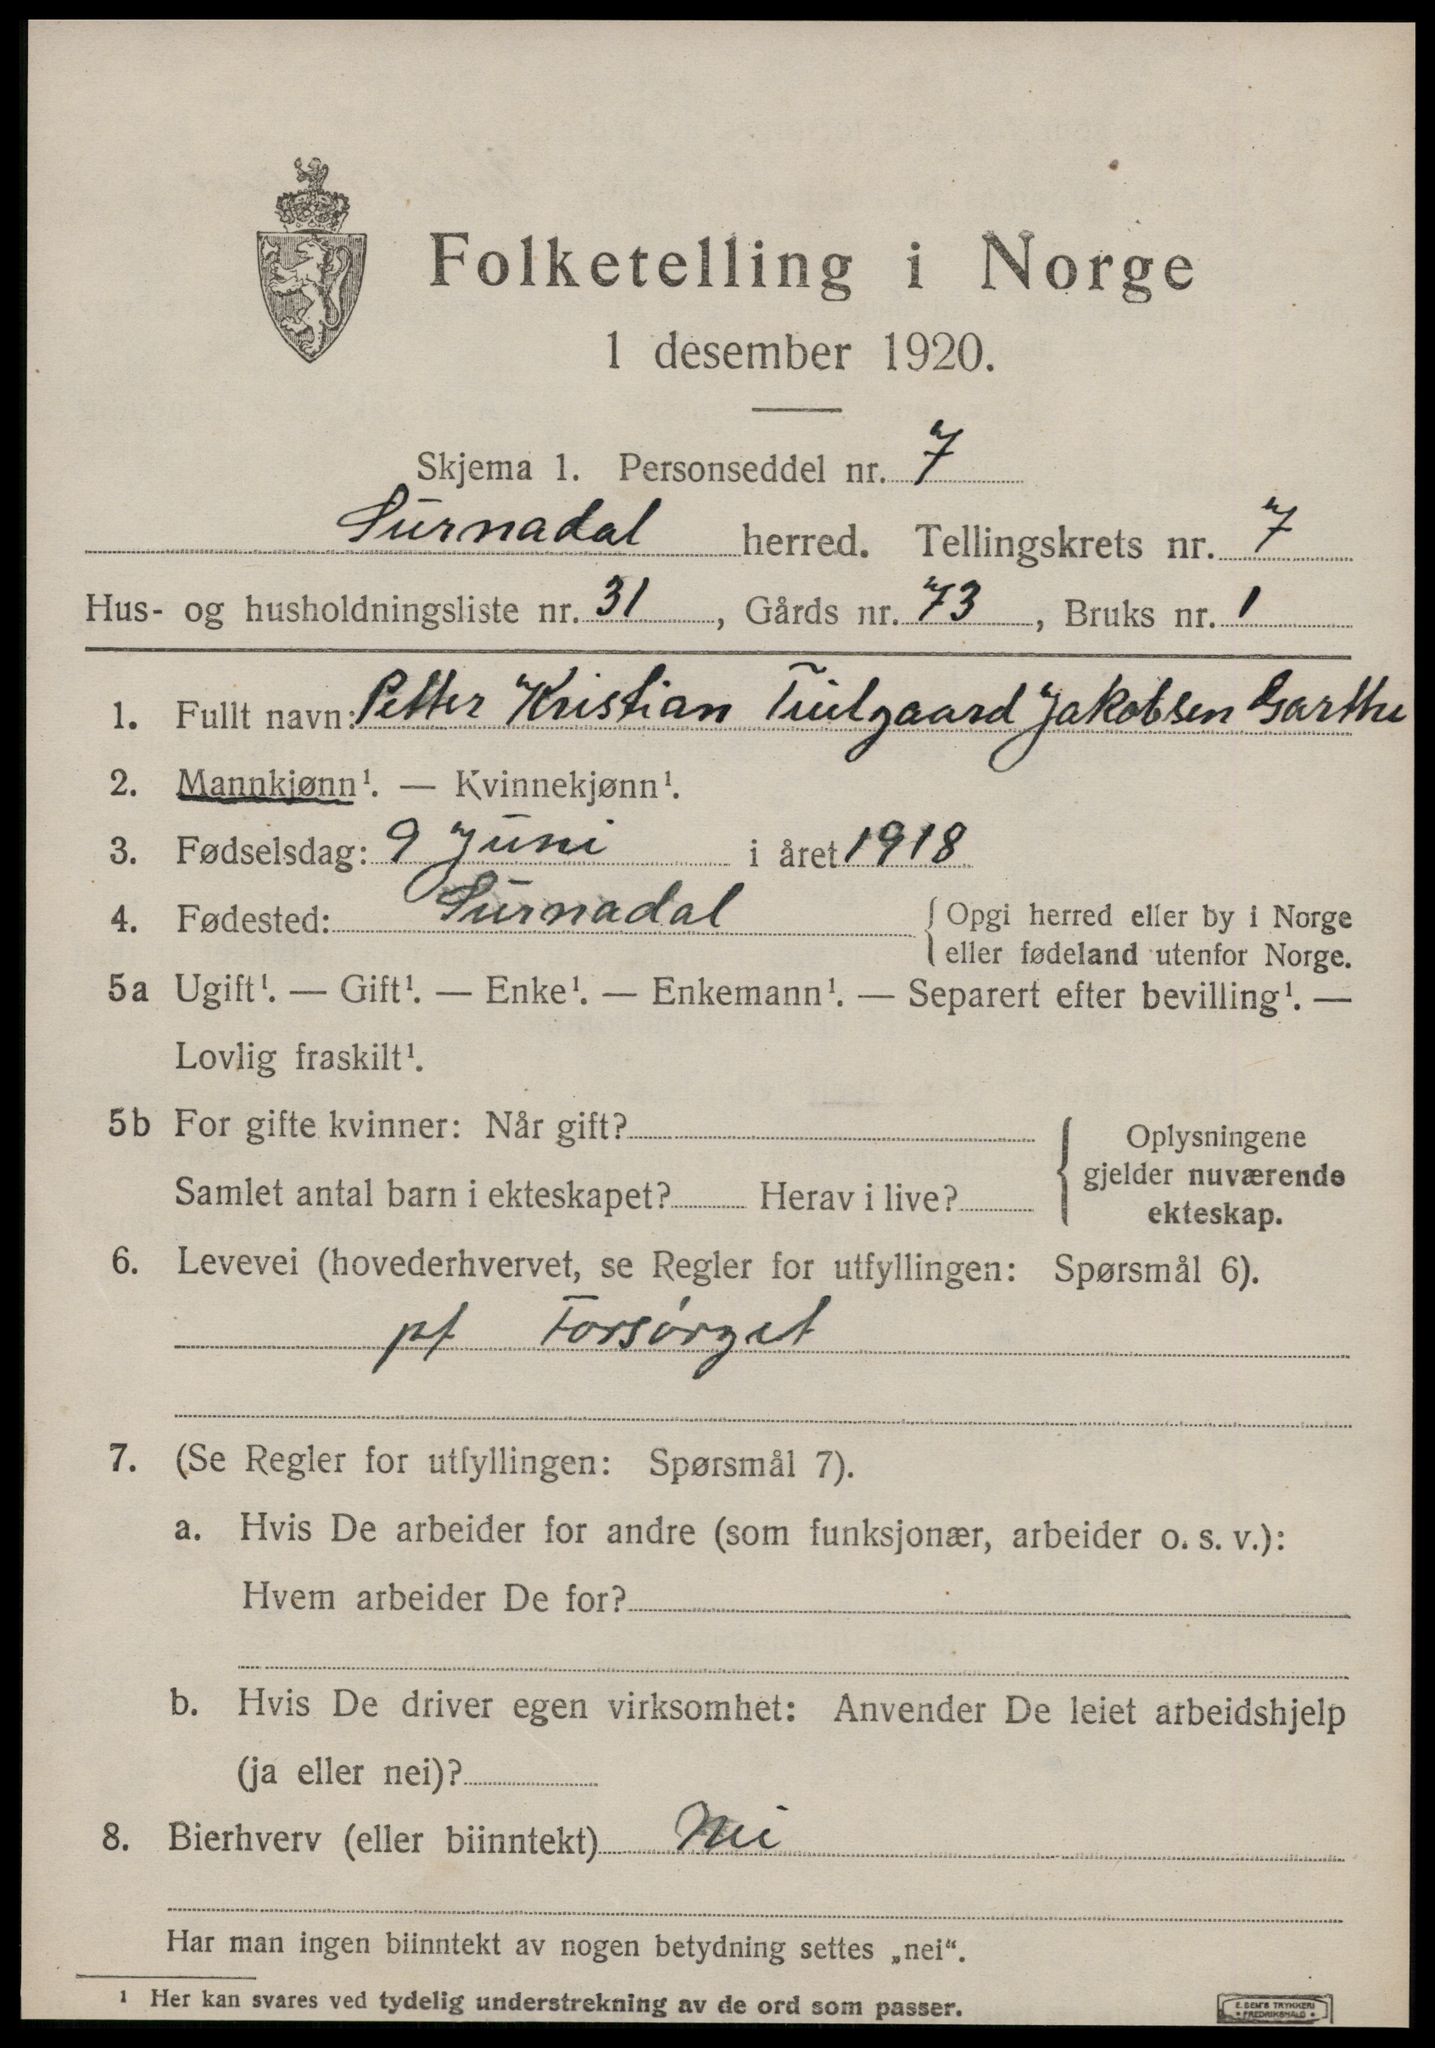 Folketelling i Norge
1 desember 1920.
Skjema 1. Personseddel nr. 7
Surnadal herred. Tellingskrets nr. 7
Hus- og husholdningsliste nr. 31, Gårds nr. 73, Bruks nr. 1
1. Fullt navn: Petter Kristian Jakobsen Garthe
2. Mannkjønn¹. — Kvinnekjønn¹.
3. Fødselsdag: 9 Juni i året 1918
4. Fødested: Surnadal { Opgi herred eller by i Norge
eller fødeland utenfor Norge.
5a Ugift¹. — Gift¹. — Enke¹. — Enkemann¹. — Separert efter bevilling¹. —
Lovlig fraskilt¹.
5b For gifte kvinner: Når gift?
Samlet antal barn i ekteskapet? Herav i live?
{ Oplysningene
gjelder nuværende
ekteskap.
6. Levevei (hovederhvervet, se Regler for utfyllingen: Spørsmål 6).
pf Forsørget
7. (Se Regler for utfyllingen: Spørsmål 7).
a. Hvis De arbeider for andre (som funksjonær, arbeider o. s. v.):
Hvem arbeider De for?
b. Hvis De driver egen virksomhet: Anvender De leiet arbeidshjelp
(ja eller nei)?
8. Bierhverv (eller biinntekt) Nei
Har man ingen biinntekt av nogen betydning settes „nei“.
1 Her kan svares ved tydelig understrekning av de ord som passer.
E. SEM'S TRYKKERI
• FREDRIKSHALD •